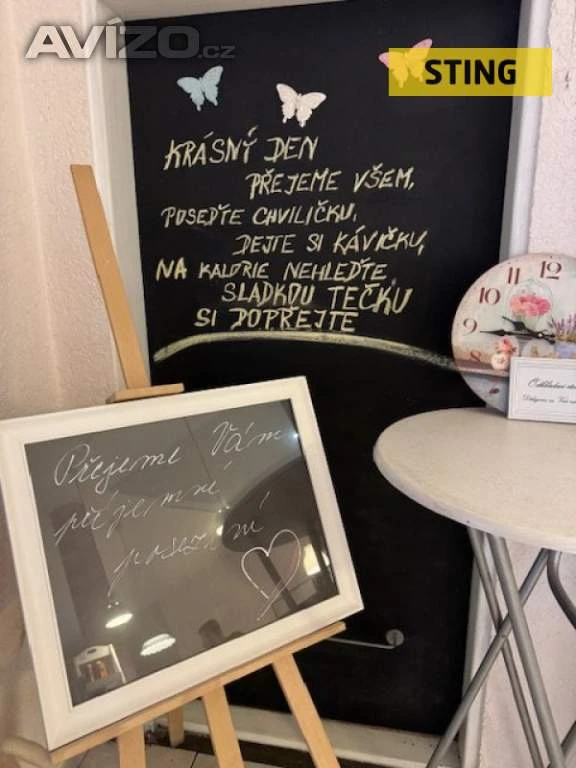 AVÍZO.cz
STING
KRÁSNÝ DEN
PŘEJEME VŠEM,
POSEĎTE CHVILIČKU,
DEJTE SI KÁVIČKU,
NA KALORIE NEHLEĎTE,
SLADKOU TEČKU
SI DOPŘEJTE
10
11
12
9
8
7
Přejeme Vám
příjemné
posezení